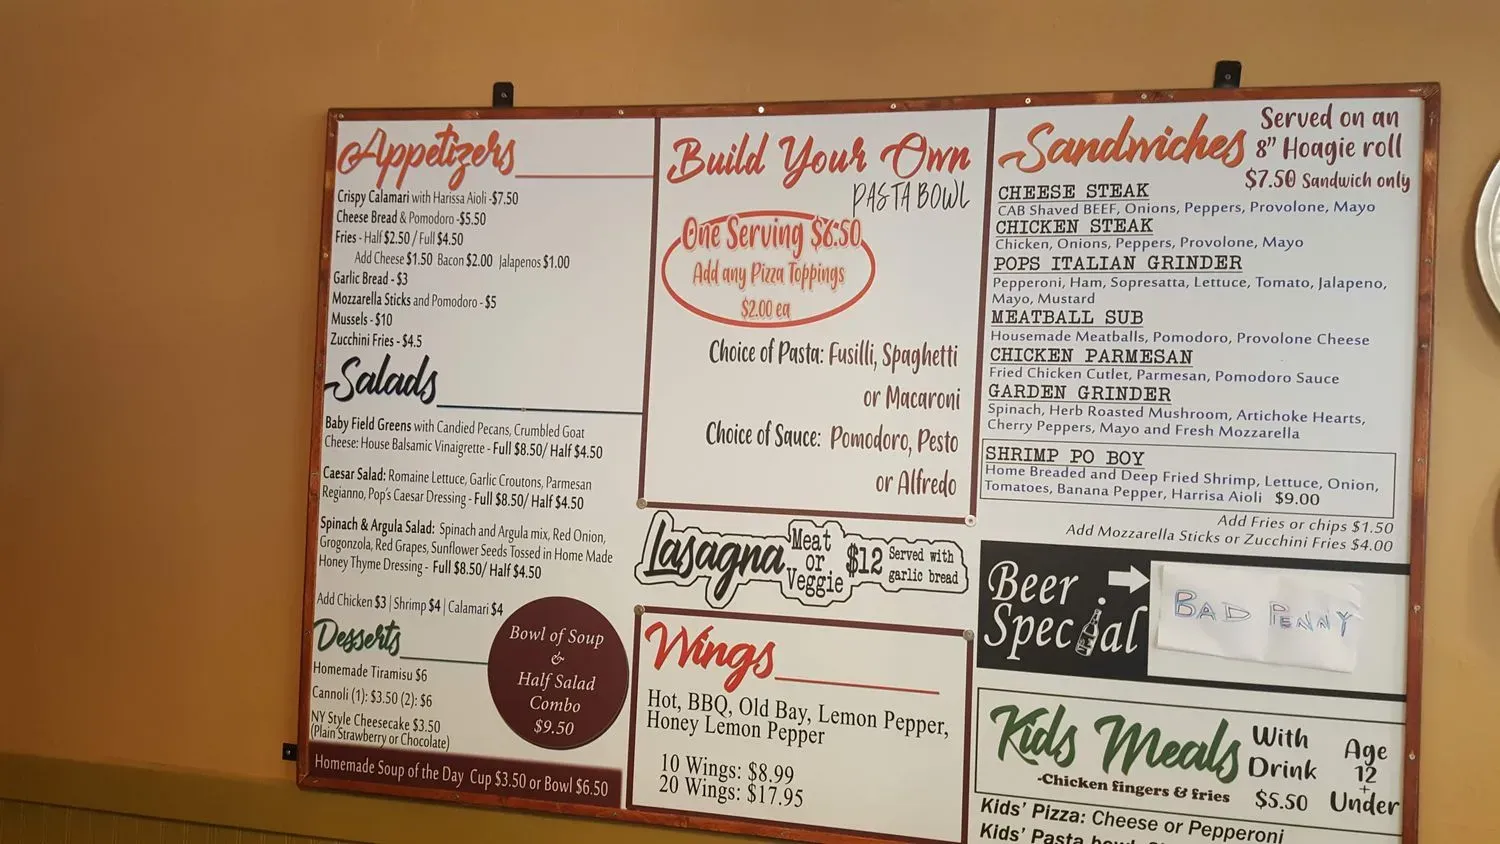 Appetizers
Crispy Calamari with Harissa Aioli -$7.50
Cheese Bread & Pomodoro -$5.50
Fries - Half $2.50 / Full $4.50
Add Cheese $1.50 Bacon $2.00 Jalapenos $1.00
Garlic Bread - $3
Mozzarella Sticks and Pomodoro - $5
Mussels - $10
Zucchini Fries - $4.5
Salads
Baby Field Greens with Candied Pecans, Crumbled Goat
Cheese: House Balsamic Vinaigrette - Full $8.50/ Half $4.50
Caesar Salad: Romaine Lettuce, Garlic Croutons, Parmesan
Regianno, Pop's Caesar Dressing - Full $8.50/ Half $4.50
Spinach & Argula Salad: Spinach and Argula mix, Red Onion,
Grogonzola, Red Grapes, Sunflower Seeds Tossed in Home Made
Honey Thyme Dressing - Full $8.50/ Half $4.50
Add Chicken $3 | Shrimp $4 | Calamari $4
Desserts
Homemade Tiramisu $6
Cannoli (1): $3.50 (2): $6
NY Style Cheesecake $3.50
(Plain Strawberry or Chocolate)
Bowl of Soup
&
Half Salad
Combo
$9.50
Homemade Soup of the Day Cup $3.50 or Bowl $6.50
Build Your Own
PASTA BOWL
One Serving $6.50
Add any Pizza Toppings
$2.00 ea
Choice of Pasta: Fusilli, Spaghetti
or Macaroni
Choice of Sauce: Pomodoro, Pesto
or Alfredo
Lasagna Meat or Veggie $12 Served with garlic bread
Wings
Hot, BBQ, Old Bay, Lemon Pepper,
Honey Lemon Pepper
10 Wings: $8.99
20 Wings: $17.95
Sandwiches
Served on an
8" Hoagie roll
$7.50 Sandwich only
CHEESE STEAK
CAB Shaved BEEF, Onions, Peppers, Provolone, Mayo
CHICKEN STEAK
Chicken, Onions, Peppers, Provolone, Mayo
POPS ITALIAN GRINDER
Pepperoni, Ham, Sopresatta, Lettuce, Tomato, Jalapeno,
Mayo, Mustard
MEATBALL SUB
Housemade Meatballs, Pomodoro, Provolone Cheese
CHICKEN PARMESAN
Fried Chicken Cutlet, Parmesan, Pomodoro Sauce
GARDEN GRINDER
Spinach, Herb Roasted Mushroom, Artichoke Hearts,
Cherry Peppers, Mayo and Fresh Mozzarella
SHRIMP PO BOY
Home Breaded and Deep Fried Shrimp, Lettuce, Onion,
Tomatoes, Banana Pepper, Harrisa Aioli $9.00
Add Fries or chips $1.50
Add Mozzarella Sticks or Zucchini Fries $4.00
Beer
Special
BAD PENNY
Kids Meals
-Chicken fingers & fries
With
Drink
$5.50
Age
12
+
Under
Kids' Pizza: Cheese or Pepperoni
Kids' Pasta